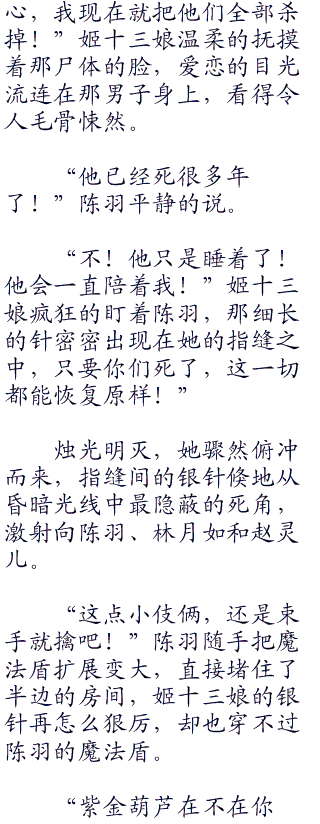 心，我现在就把他们全部杀
掉！”姬十三娘温柔的抚摸
着那尸体的脸，爱恋的目光
流连在那男子身上，看得令
人毛骨悚然。
“他已经死很多年
了！”陈羽平静的说。
“不！他只是睡着了！
他会一直陪着我！”姬十三
娘疯狂的盯着陈羽，那细长
的针密密出现在她的指缝之
中，只要你们死了，这一切
都能恢复原样！”
烛光明灭，她骤然俯冲
而来，指缝间的银针倏地从
昏暗光线中最隐蔽的死角，
激射向陈羽、林月如和赵灵
儿。
“这点小伎俩，还是束
手就擒吧！”陈羽随手把魔
法盾扩展变大，直接堵住了
半边的房间，姬十三娘的银
针再怎么狠厉，却也穿不过
陈羽的魔法盾。
“紫金葫芦在不在你